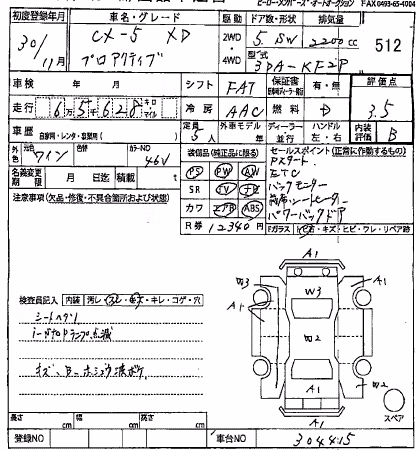 FAX0493-65-4004
初度登録年月 車名・グレード 駆動 ドア数・形状 排気量
30/11月 CX-5 XD 2WD・4WD 5 SW 2200cc 512
プロアクティブ 型式 3DA-KF2P
車検 年 月 シフト FAT 保証書 有・無 評価点
走行 6万5千628 キロ マイル 冷房 AAC 燃料 D 3.5
車歴 自家用・レンタ・事業用( ) 定員 5人 外車モデル 年 ディーラー 並行 ハンドル 左・右 内装評価 B
外色 元色 ワイン 色替 カラーNO 46V
装備品(純正品に限る) セールスポイント(正常に作動するもの)
名義変更期限 月 日迄 積載 t
PS PW AW Pスタート
ETC
注意事項(欠品・修復・不具合箇所および状態)
SR TV ナビ バックモニター
カワ エアB ABS 前席シートヒーター
パワーバックドア
R券 12340円 Fガラス
キズ・ヒビ・ワレ・リペア跡
A1
W3 W3 A1
A1
W2
検査員記入 内装 汚レ・スレ・キズ・キレ・コゲ・穴
シートヘタリ
A1 W2
A1 スペア
長さ cm 幅 cm 高さ cm
登録NO 車台NO 304415